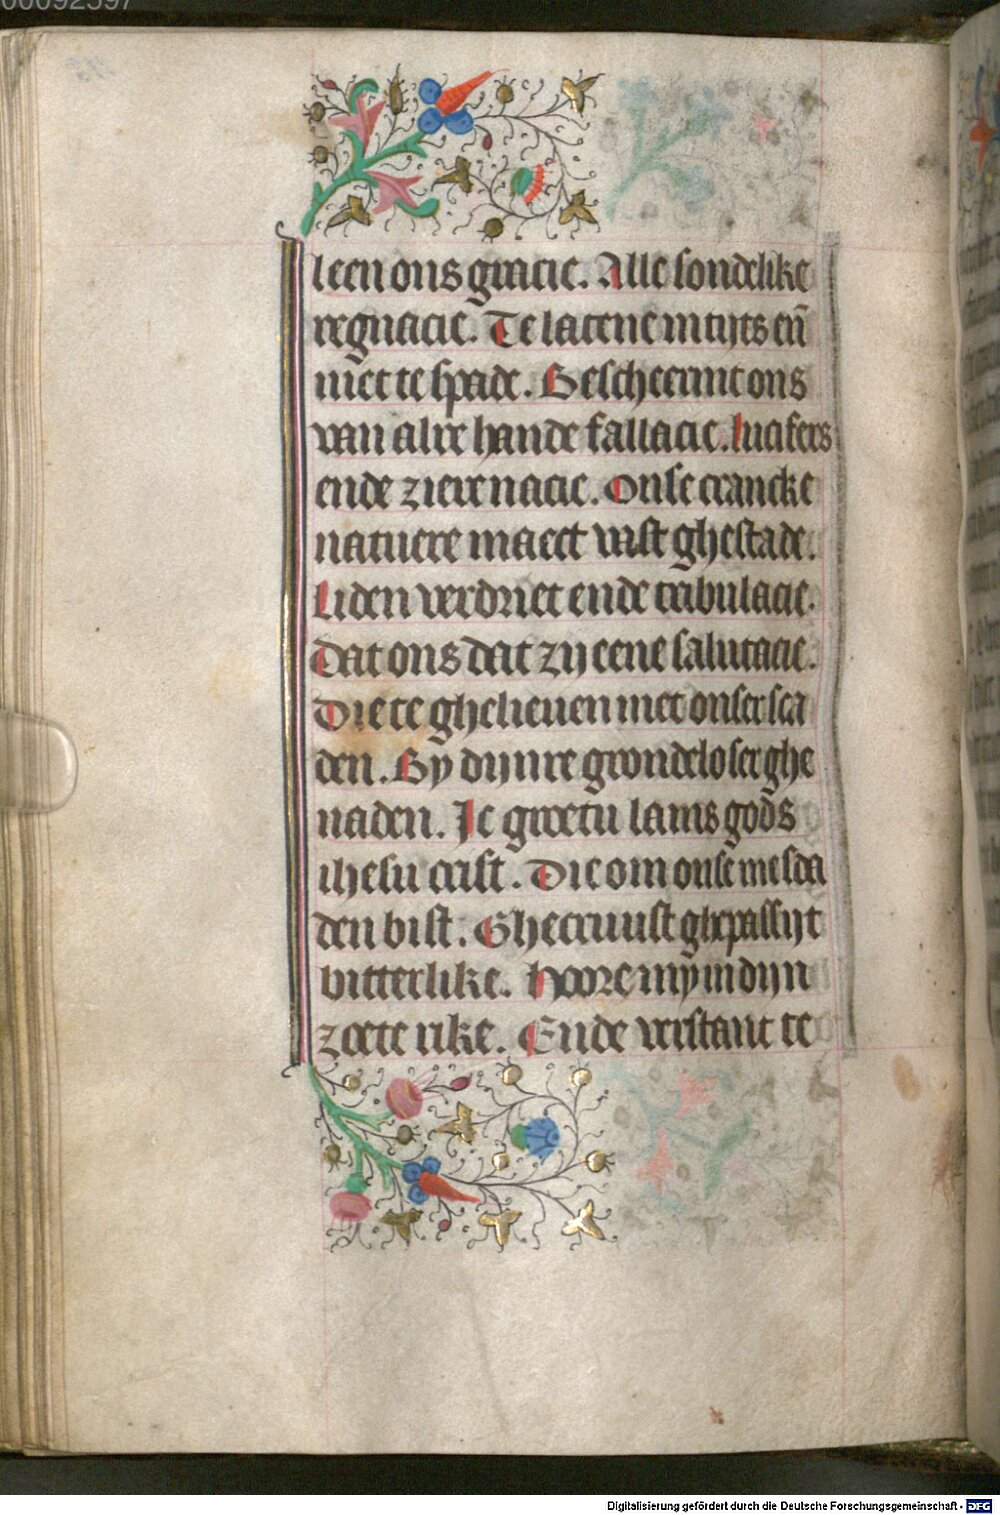 00092597
leen ons gracie. Alle sondelike
regnacie. Te latene in tijts en̄
niet te spade. Bescheermt ons
van alre hande fallacie. lucifers
ende ziere nacie. Onse crancke
natuere maect vast ghestade.
Liden verdriet ende tribulacie.
Dat ons dat zij eene salutacie.
Die te ghelieuen met onser sca
den. By dijnre grondeloser ghe
naden. Ic groetu lams gods
ihesu crist. Die om onse mesda
den bist. Ghecruust ghepassijt
bitterlike. Hoore mij in dijn
zoete rike. Ende verstant te
Digitalisierung gefördert durch die Deutsche Forschungsgemeinschaft - DFG